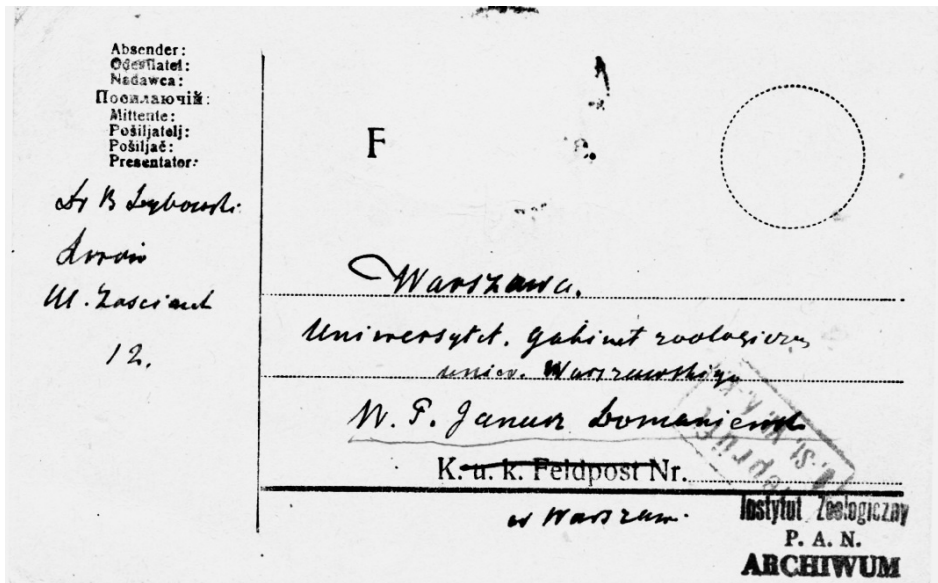 Absender:
Odesílatel:
Nadawca:
Посилаючій:
Mittente:
Pošiljatelj:
Pošiljač:
Presentator:
Dr B Dybowski
Lwów
Ul. Zaścianek
12.
F
Warszawa.
Uniwersytet. Gabinet zoologiczny
uniw. Warszawskiego
W. P. Janusz Domaniewski
K. u. k. Feldpost Nr.
w Warszaw.
Instytut Zoologiczny
P. A. N.
ARCHIWUM